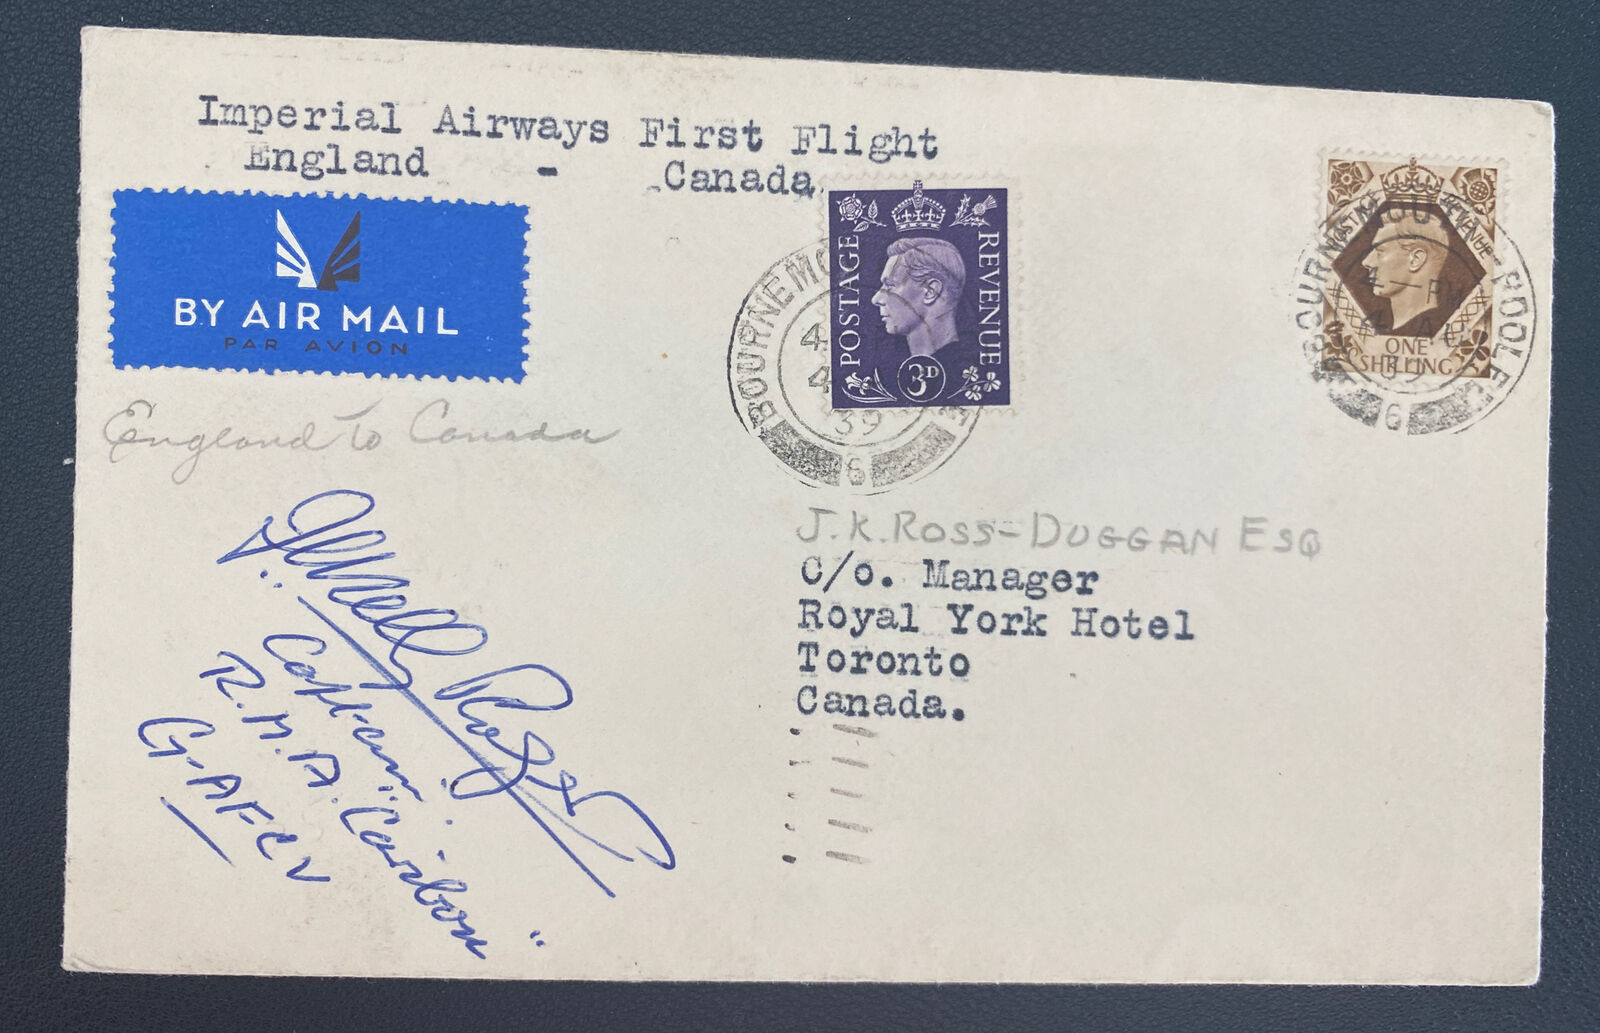 Imperial Airways First Flight
England - Canada
BY AIR MAIL
PAR AVION
England to Canada
POSTAGE
REVENUE
3D
BOURNEMO
4
4
39
6
POSTAGE
REVENUE
ONE
SHILLING
BOURNEMOUTH - POOLE
4 - PM
4 AP
6
J.K. ROSS-DUGGAN ESQ
C/o. Manager
Royal York Hotel
Toronto
Canada.
Captain.
R.M.A. "Caribou"
G-AFCV